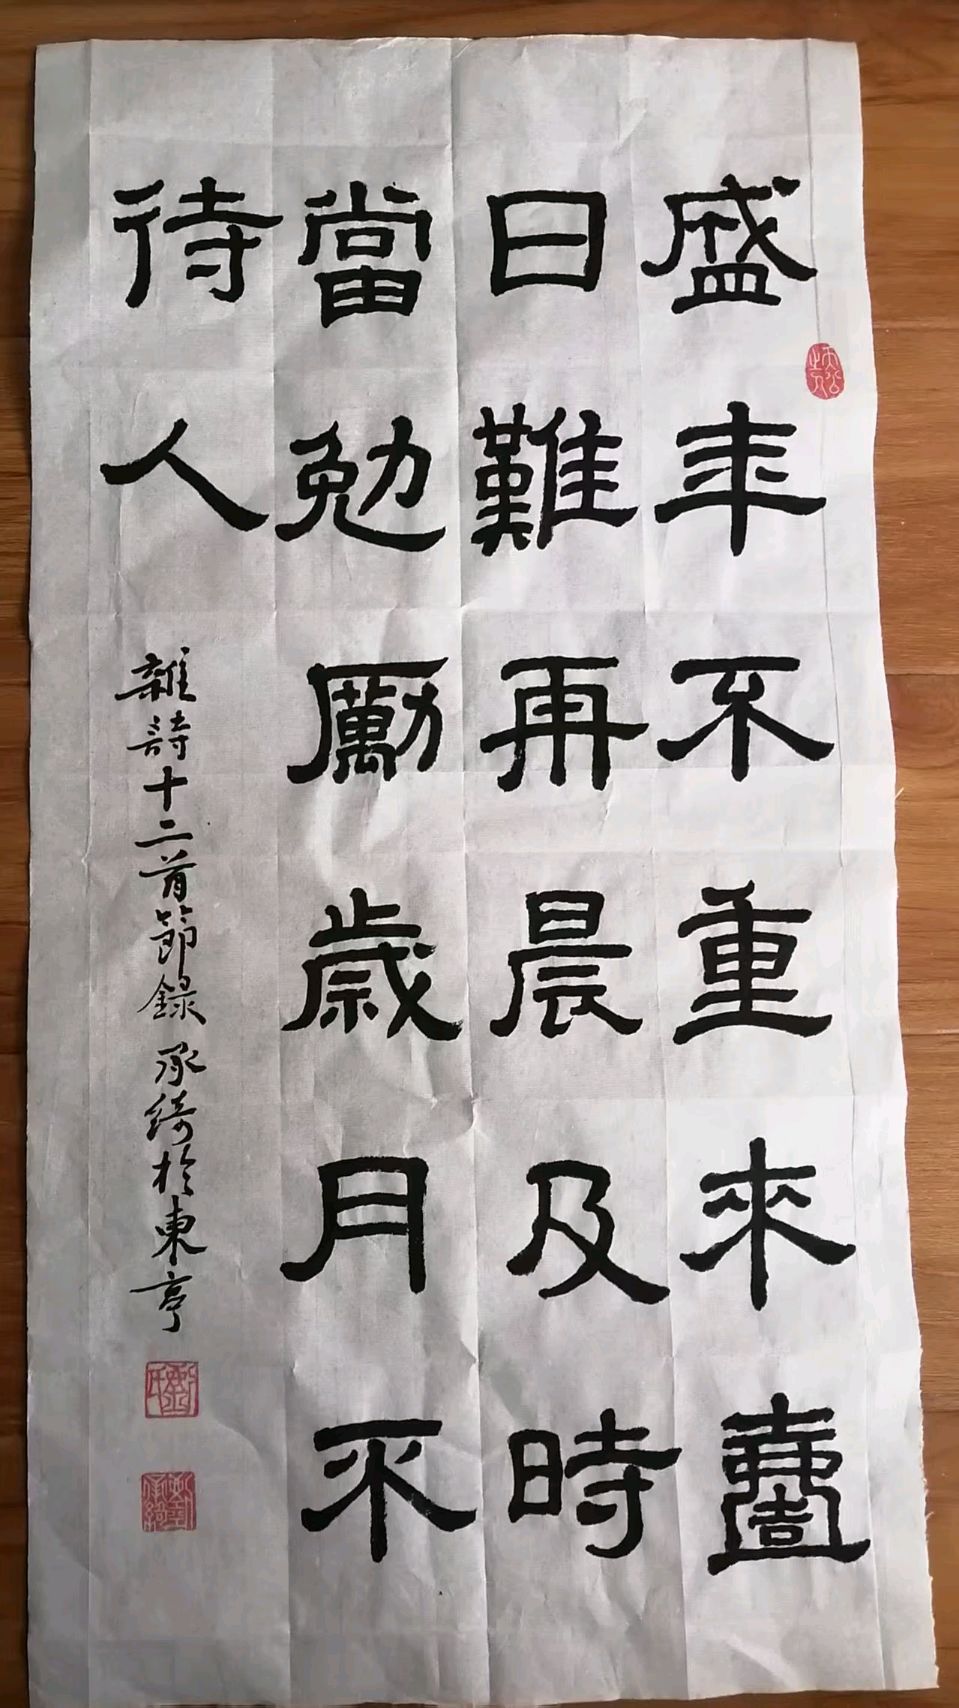 盛年不重來壹
日難再晨及時
當勉勵歲月不
待人
雜詩十二首節錄 承綺於東亭